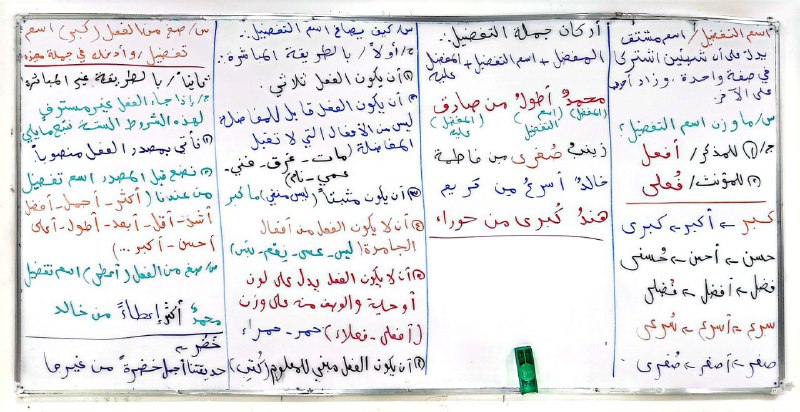 اسم التفضيل / اسم مشتق
يدل على أن شيئين اشتركا
في صفة واحدة وزاد أحدهما
على الآخر
س/ ما وزن اسم التفضيل؟
ج/ ① للمذكر / أفعل
② للمؤنث / فُعلى
كبر ← أكبر ← كبرى
حسن ← أحسن ← حُسنى
فضل ← أفضل ← فُضلى
سرع ← أسرع ← سُرعى
صغر ← أصغر ← صُغرى
أركان جملة التفضيل:
المفضل + اسم التفضيل + المفضل عليه
محمدٌ أطولُ من صادق
(المفضل) (اسم التفضيل) (المفضل عليه)
زينبُ صُغرى من فاطمة
خالدٌ أسرعُ من كريم
هندٌ كُبرى من حوراء
س/ كيف يصاغ اسم التفضيل
ج/ أولاً / بالطريقة المباشرة:
① أن يكون الفعل ثلاثي.
② أن يكون الفعل قابل للمفاضلة
ليس من الأفعال التي لا تقبل
المفاضلة (مات - غرق - فني -
عمي - نام)
③ أن يكون مثبتاً (ليس منفي) ما كبر
④ أن لا يكون الفعل من أفعال
الجامدة (ليس - عسى - نعم - بئس)
⑤ أن لا يكون الفعل يدل على لون
أو حلية والوصف منه على وزن
(أفعل - فعلاء) حمر - حمراء
⑥ أن يكون الفعل مبني للمعلوم (كُتِبَ)
س/ صغ من الفعل (كبر) اسم
تفضيل وأدخله في جملة مفيدة
ثانياً / بالطريقة غير المباشرة
ج/ إذا جاء الفعل غير مستوفٍ
لهذه الشروط الستة نتبع ما يلي
① نأتي بمصدر الفعل منصوباً
② نضع قبل المصدر اسم تفضيل
من عندنا (أكثر - أجمل - أفضل
أشد - أقل - أبعد - أطول - أعلى
أحسن - أكبر ...)
س/ صغ من الفعل (أعطى) اسم تفضيل
محمدٌ أكثرُ إعطاءً من خالد
خَضُرَ ←
حديقتنا أجمل خضرةً من غيرها